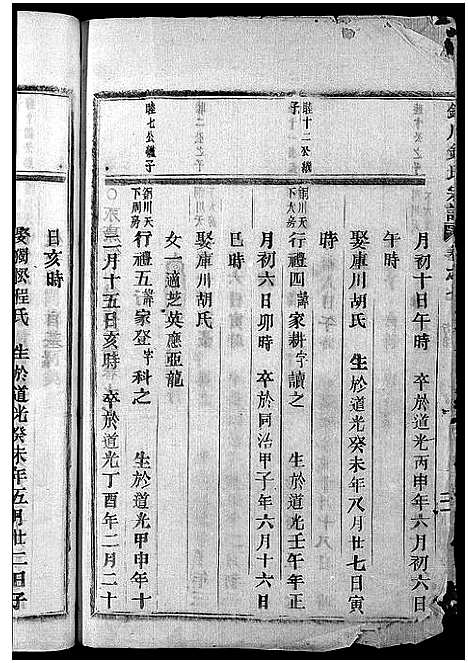 月初十日午時 卒於道光丙申年六月初六日
午時
娶庫川胡氏 生於道光癸未年八月廿七日寅
時
睦十二公繼
子
銅川天
下大房
行禮四諱家耕字讀之 生於道光壬午年正
月初六日卯時 卒於同治甲子年六月十六日
巳時
娶庫川胡氏
女一適芝英應亜龍
睦七公繼子
銅川天
下周房
行禮五諱家登字科之 生於道光甲申年十
一月十五日亥時 卒於道光丁酉年二月二十
日亥時
娶獨松程氏 生於道光癸未年五月廿二日子